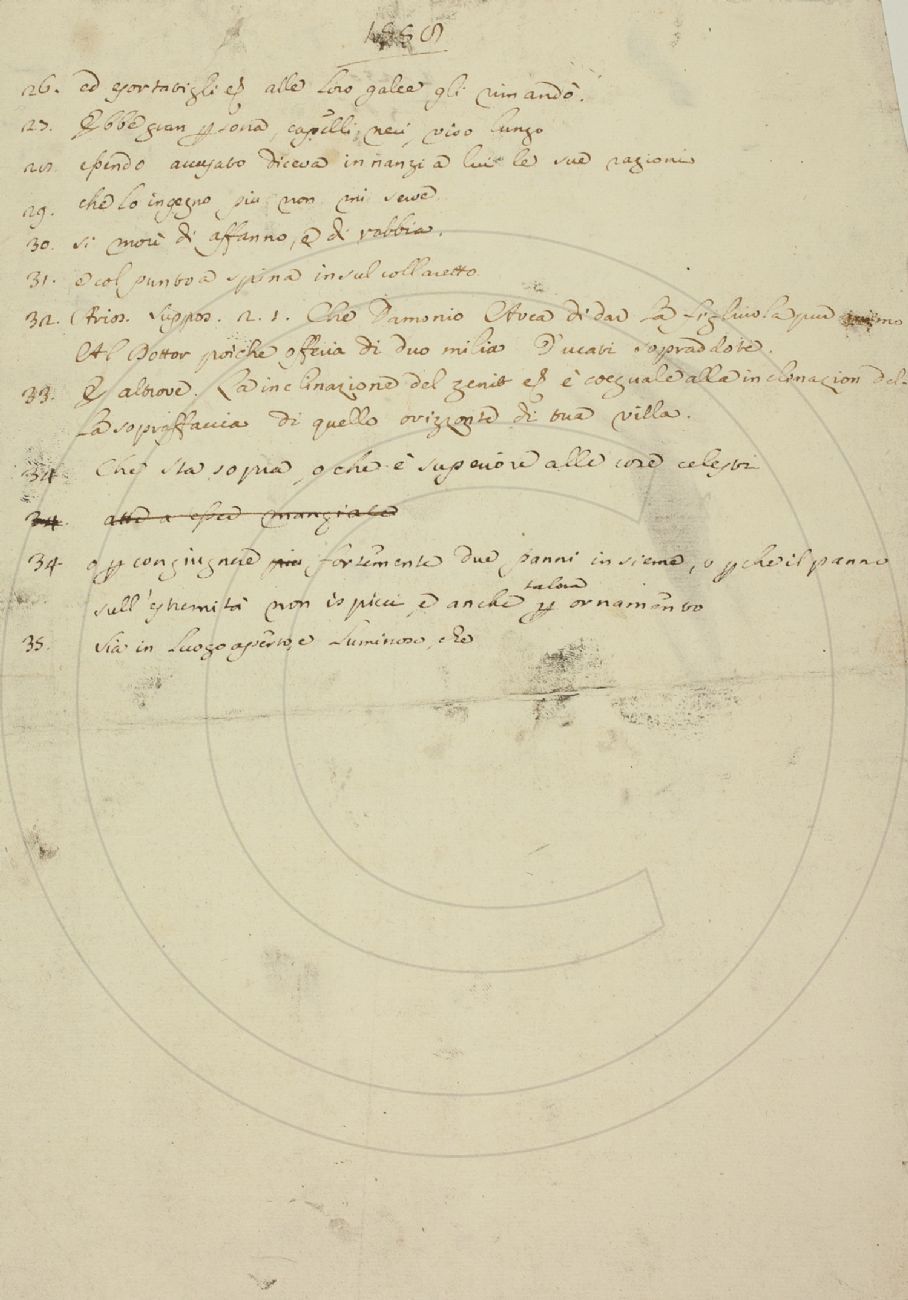 26. ed esortatigli alle loro galee gli rimandò.
27. Ebbe gran psona, capelli neri, viso lungo
28. essendo accusato diceva innanzi a lui le sue ragioni
29. che lo ingegno più non mi serve
30. si morì di affanno, e di rabbia.
31. e col punto a spina in sul collaretto
32. Arios. Suppos. 2. 1. Che Damonio Avea di dar La figliuola pur
Al Dottor poiche offeria di duo milia Ducati sopraddote.
33. E altrove. La inclinazione del zenit è coeguale alla inclinazion del-
La sopraffaccia di quello orizzonte di tua villa.
34 Che sta sopra, o che è superiore alle cose celesti
34. atte a esser mangiate
34 o p congiugnere più fortemente due panni insieme, o p che il panno
sull'estremità non ispicci, e anche talora p ornamento
35. Sia in luogo aperto, e luminoso, che